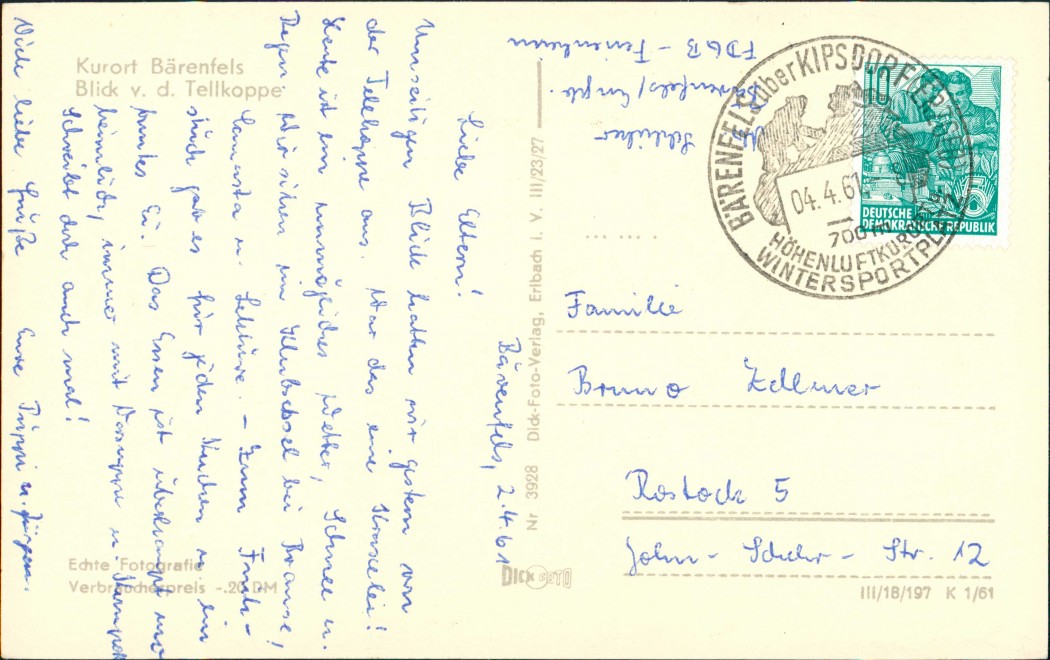 Kurort Bärenfels
Blick v. d. Tellkoppe
Bärenfels, 2.4.61
Liebe Eltern!
Umseitigen Blick hatten wir gestern von
der Tellkoppe aus. War das eine Kraxelei!
Heute ist ein unmögliches Wetter, Schnee u.
Regen. Wir sitzen im Klubsessel bei Brause,
Canasta u. Lektüre. – Zum Früh-
stück gab es für jeden Kuchen u. ein
buntes Ei. Das Essen ist überhaupt
immer mit Vorsuppe u.
Schreibt doch auch mal!
Viele liebe Grüße Eure Püppi u. Jürgen.
Echte Fotografie
Verbraucherpreis -.20 DM
Nr 3928 Dick-Foto-Verlag, Erlbach i. V. III/23/27
DICK FOTO
Bärenfels/Erzgeb.
FDGB – Ferienheim
BÄRENFELS über KIPSDORF
04.4.61
700 m
HÖHENLUFTKURORT
WINTERSPORTPLATZ
10
5
DEUTSCHE
DEMOKRATISCHE REPUBLIK
Familie
Bruno Zellmer
Rostock 5
John-Schehr-Str. 12
III/18/197 K 1/61